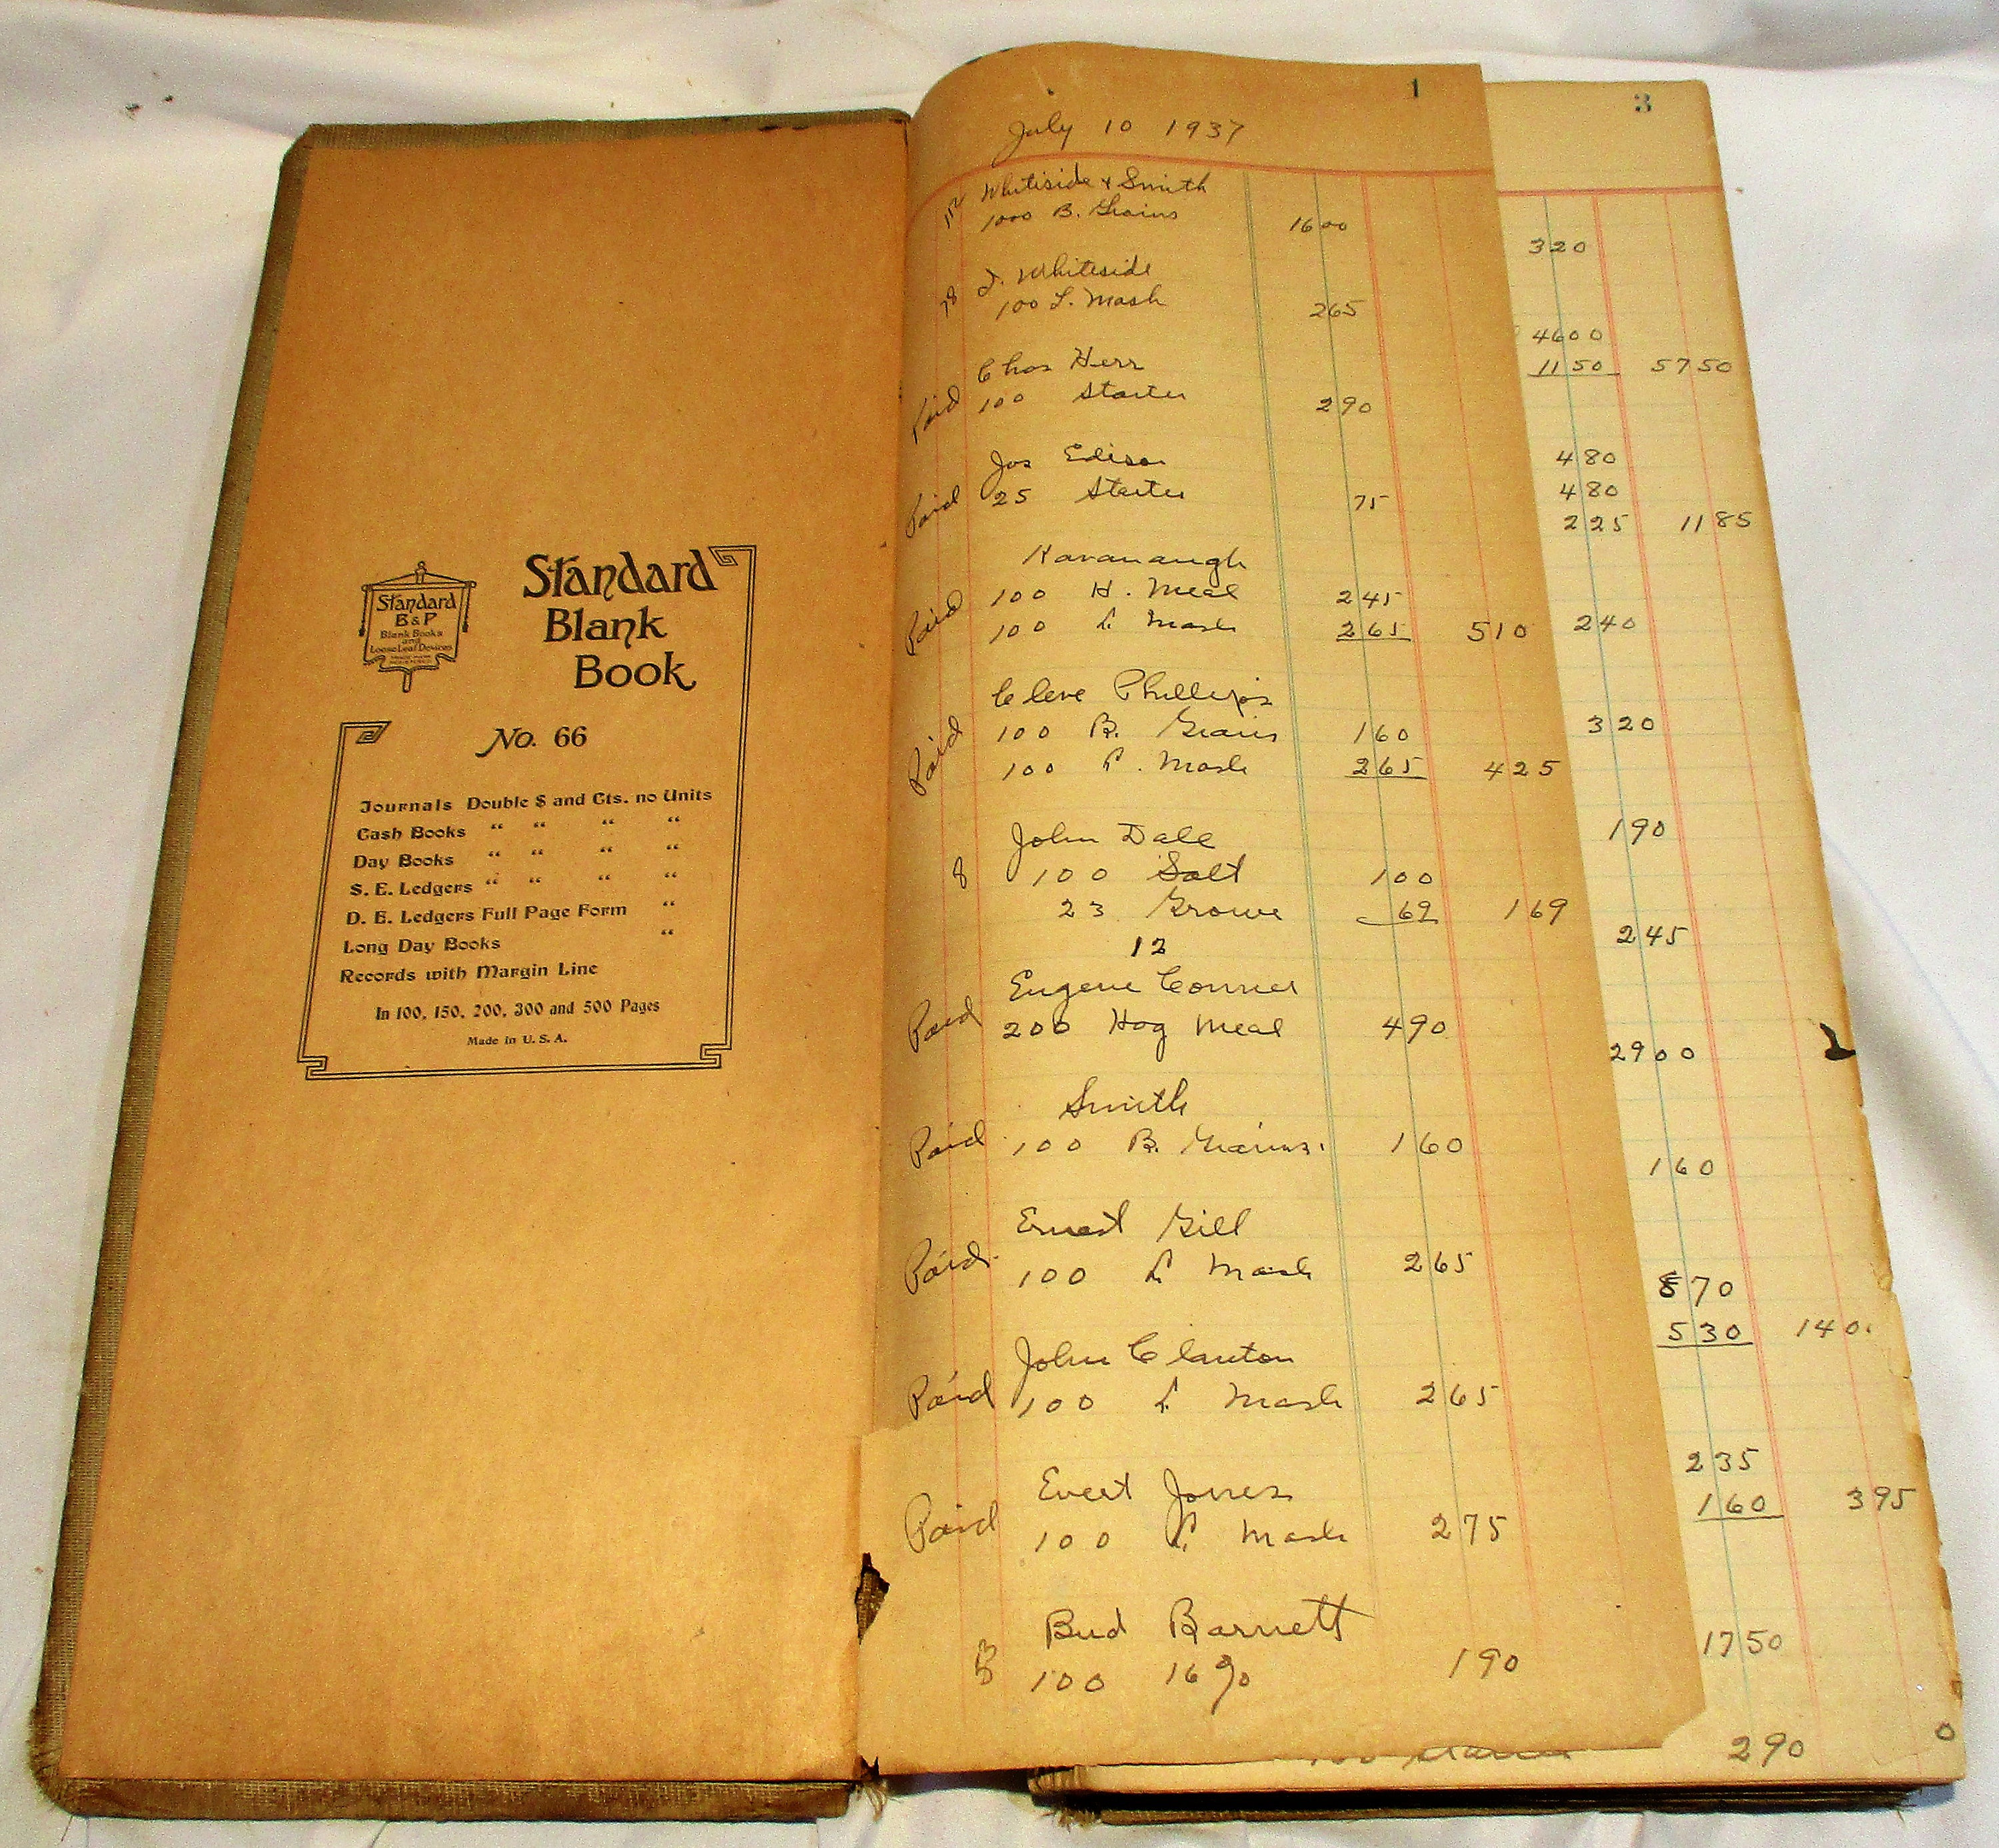 Standard
B & P
Blank Books
and
Loose Leaf Devices
Standard
Blank
Book
No. 66
Journals Double $ and Cts. no Units
Cash Books “ “ “ “
Day Books “ “ “ “
S. E. Ledgers “ “ “ “
D. E. Ledgers Full Page Form “
Long Day Books “
Records with Margin Line
In 100, 150, 200, 300 and 500 Pages
Made in U. S. A.
1
July 10 1937
Whitiside & Smith
1000 B. Grains 1600
J. Whiteside
78 100 L. Mash 265
Chas Herr
Paid 100 Starter 290
Jos Edison
Paid 25 Starter 75
Kavanaugh
Paid 100 H. Meal 245
100 L Mash 265 510
Cleve Phillips
Paid 100 B. Grains 160
100 L. Mash 265 425
John Dale
8 100 Salt 100
23 Growe 69 169
12
Eugene Conner
Paid 200 Hog Meal 490
Smith
Paid 100 B. Grains. 160
Ernest Gill
Paid 100 L Mash 265
John Clanton
Paid 100 L Mash 265
Evert Jones
Paid 100 L. Mash 275
Bud Barnett
100 16% 190
3
320
4600
1150 5750
480
480
225 1185
240
320
190
245
2900
160
870
530 140.
235
160 395
1750
290 0